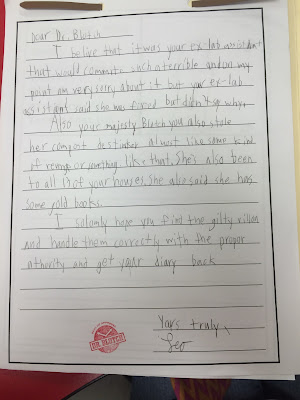 Dear Dr. Blotch
I belive that it was your ex-lab assistant
that would commit such terrible and on my
point am very sorry about it but your ex-lab
assistant said she was forced but didn't say why.
Also your majesty Blotch you also stole
her compost destinber almost like some kind
of revenge or something like that. She's also been
to all 13 of your houses. She also said she has
some gold books.
I solomly hope you find the gilty villon
and handle them correctly with the propor
athority and get your diary back
Yors truly,
Leo
DR. BLOTCH